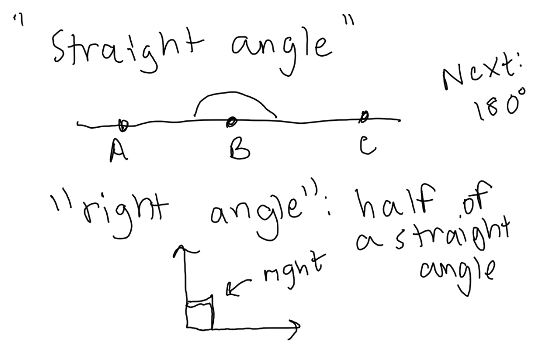 "Straight angle"
Next:
180°
A B C
"right angle": half of
a straight
angle
right